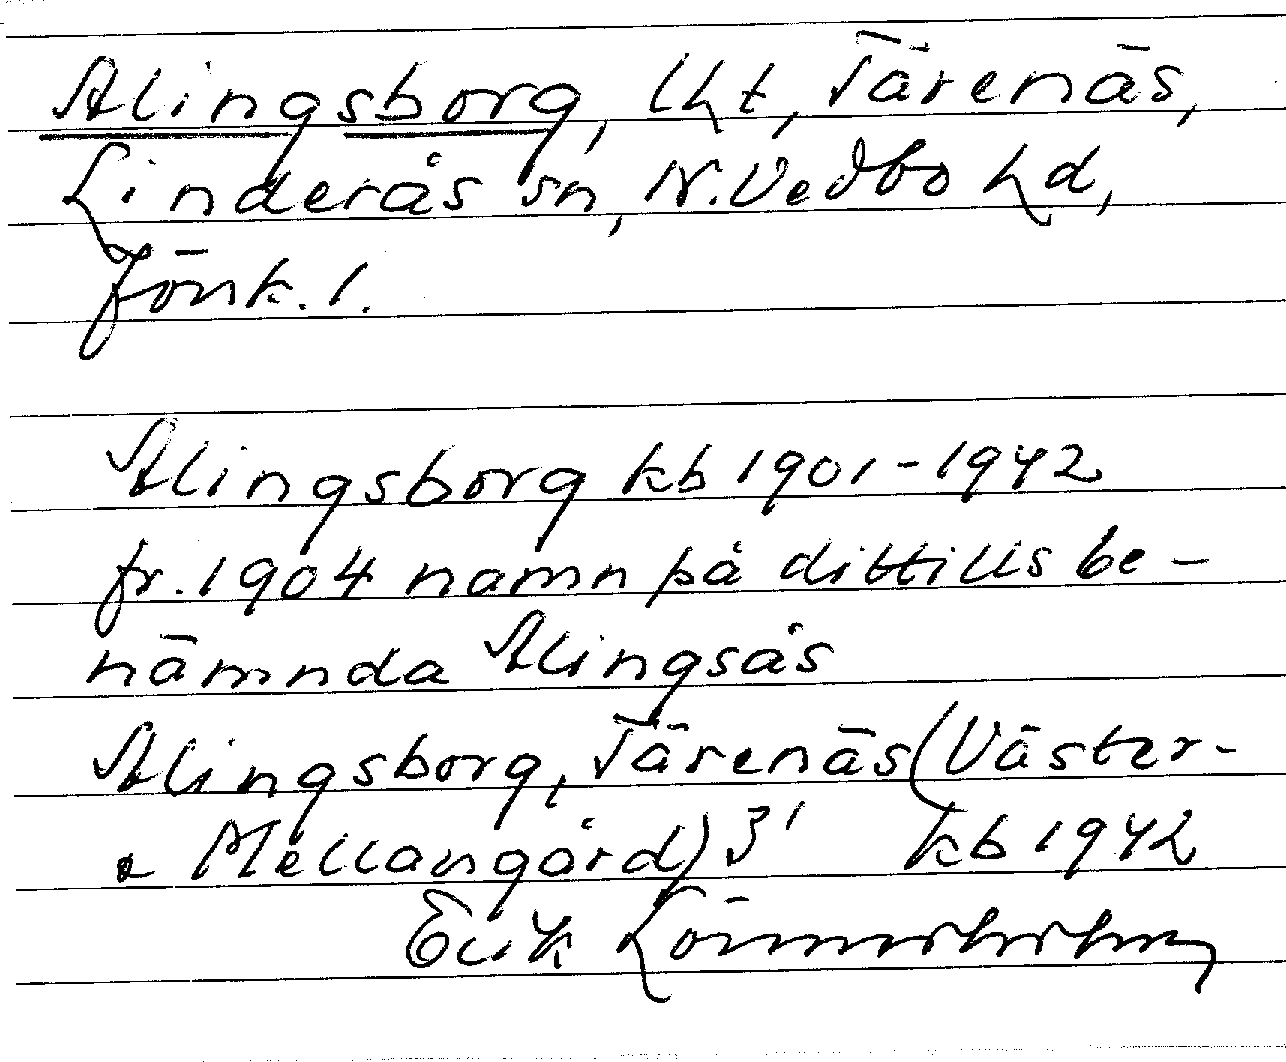 Alingsborg, lht, Tärenäs,
Linderås sn, N. Vedbo hd,
Jönk. l.
Alingsborg kb 1901-1942
fr. 1904 namn på dittills be-
nämnda Alingsås
Alingsborg, Tärenäs (Väster-
o Mellangård) 3' kb 1942
Erik